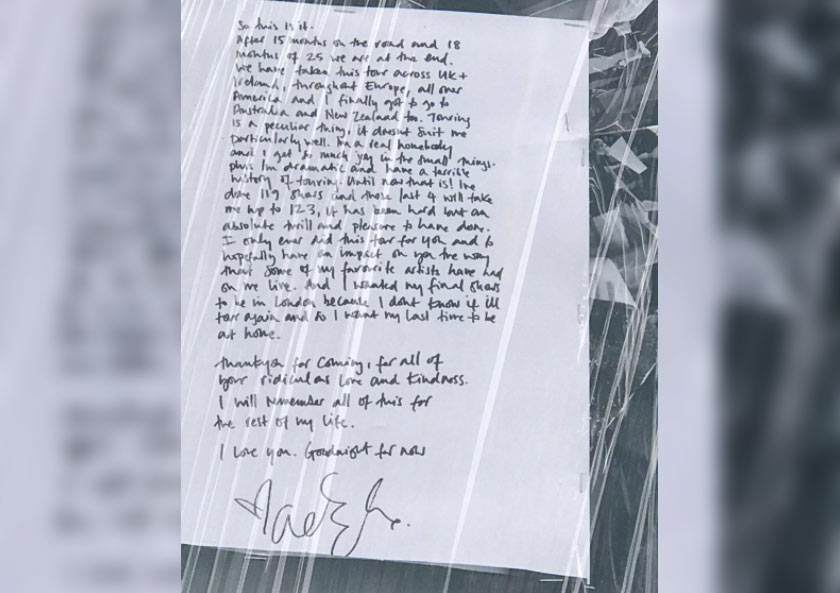 So this is it.
After 15 months on the road and 18
months of 25 we are at the end.
We have taken this tour across UK +
Ireland, throughout Europe, all over
America and I finally got to go to
Australia and New Zealand too. Touring
is a peculiar thing, it doesnt suit me
particularly well. Im a real homebody
and I get so much joy in the small things.
plus Im dramatic and have a terrible
history of touring. Until now that is! Ive
done 119 shows and these last 4 will take
me up to 123, it has been hard but an
absolute thrill and pleasure to have done.
I only ever did this tour for you and to
hopefully have an impact on you the way
that some of my favourite artists have had
on me live. And I wanted my final shows
to be in London because I dont know if ill
tour again and so I want my last time to be
at home.
Thankyou for coming, for all of
your ridiculas love and kindness.
I will remember all of this for
the rest of my life.
I love you. Goodnight for now